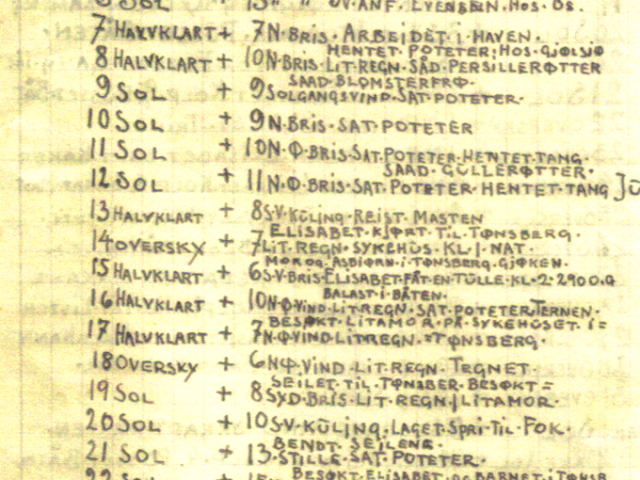 SOL + 13 " " ØV. ANF. EVENSEN. HOS. OS.
7 HALVKLART + 7 N. BRIS. ARBEIDET. I. HAVEN.
HENTET. POTETER. HOS. GJØLSJØ
8 HALVKLART + 10 N. BRIS. LIT. REGN. SÅD. PERSILLERØTTER
SAAD. BLOMSTERFRØ.
9 SOL + 9 SOLGANGSVIND. SAT. POTETER.
10 SOL + 9 N. BRIS. SAT. POTETER
11 SOL + 10 N. Ø. BRIS. SAT. POTETER. HENTET. TANG.
SAAD. GULLERØTTER.
12 SOL + 11 N. Ø. BRIS. SAT. POTETER. HENTET. TANG
13 HALVKLART + 8 S.V. KULING. REIST. MASTEN
ELISABET. KJØRT. TIL. TØNSBERG.
14 OVERSKY + 7 LIT. REGN. SYKEHUS. KL. 1. NAT.
MOR OG. ASBJØRN. I. TØNSBERG. GJØKEN.
15 HALVKLART + 6 S.V. BRIS. ELISABET. FÅT. EN. TULLE. KL. 2. 2900. G
BALAST. I. BÅTEN.
16 HALVKLART + 10 N. Ø. VIND. LIT. REGN. SAT. POTETER. TERNEN.
BESØKT. LITAMOR. PÅ. SYKEHUSET. I =
17 HALVKLART + 7 N. Ø. VIND. LIT. REGN. = TØNSBERG.
18 OVERSKY + 6 NØ. VIND. LIT. REGN. TEGNET
SEILET. TIL. TØNSBER. BESØKT =
19 SOL + 8 SYD. BRIS. LIT. REGN. / LITAMOR.
20 SOL + 10 SV. KULING. LAGET. SPRI. TIL. FOK.
BENDT. SEILENE.
21 SOL + 13. STILLE. SAT. POTETER.
BESØKT. ELISABET. OG BARNET. I TØNSB
22 SOL +